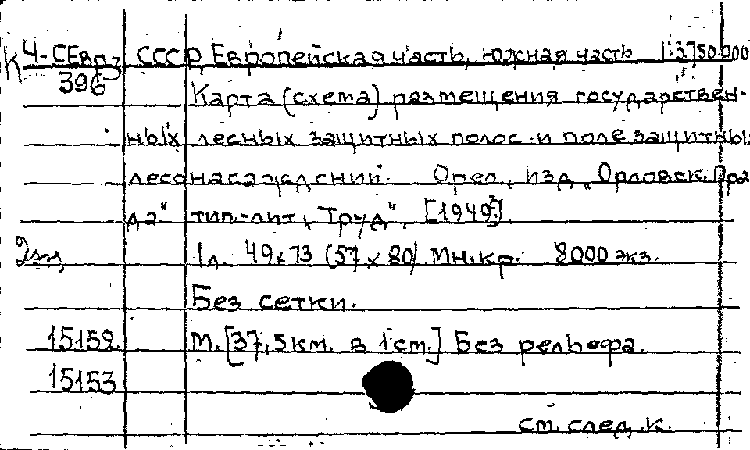 К Ч-СЕвр.з СССР, Европейская часть, южная часть 1:3750.000
396 Карта (схема) размещения государствен-
ных лесных защитных полос и полезащитны
лесонасаждений. Орел, изд. „Орловск. Пра
да" тип.-лит. „Труд", [1949?].
2экз 1л. 49х73 (57х80) мн.кр. 8000 экз.
Без сетки.
15152 М. [37,5км. в 1см.] Без рельефа.
15153
см. след. к.